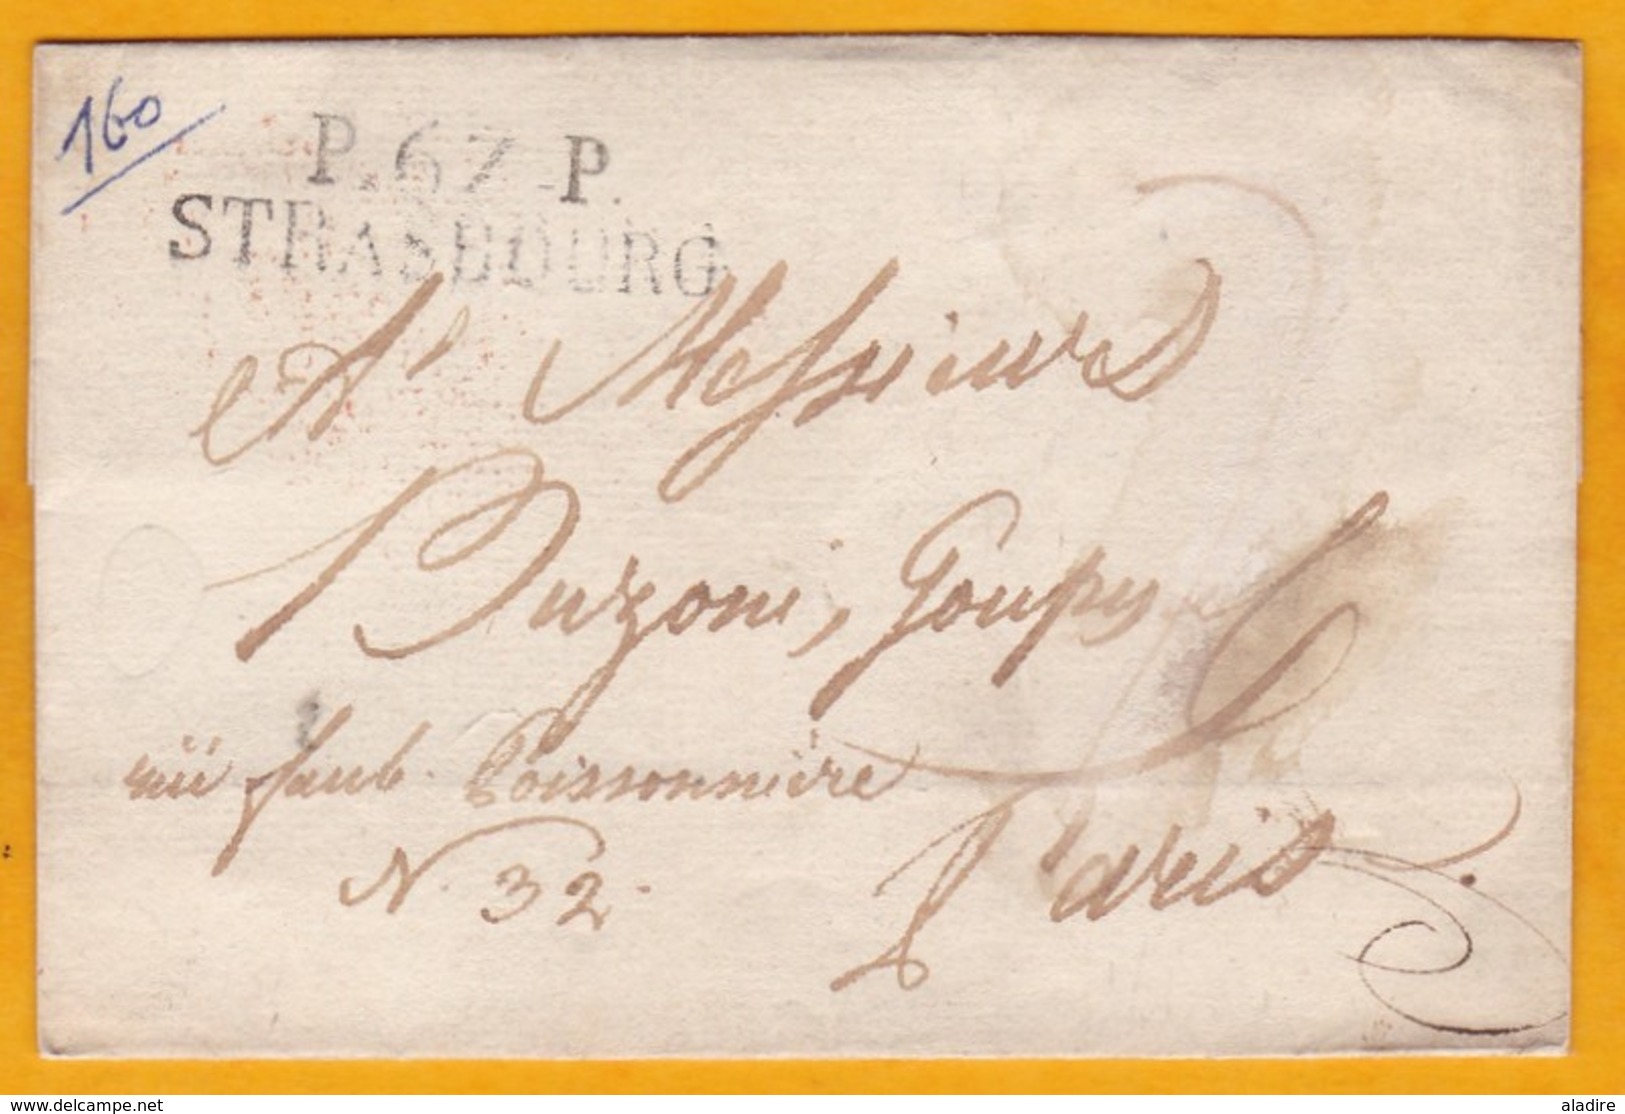 160
P.67.P.
STRASBOURG
A Messieurs
Buzoni, Goupy
rüe faub. Poissonnière
N. 32.
Paris
www.delcampe.net
aladire